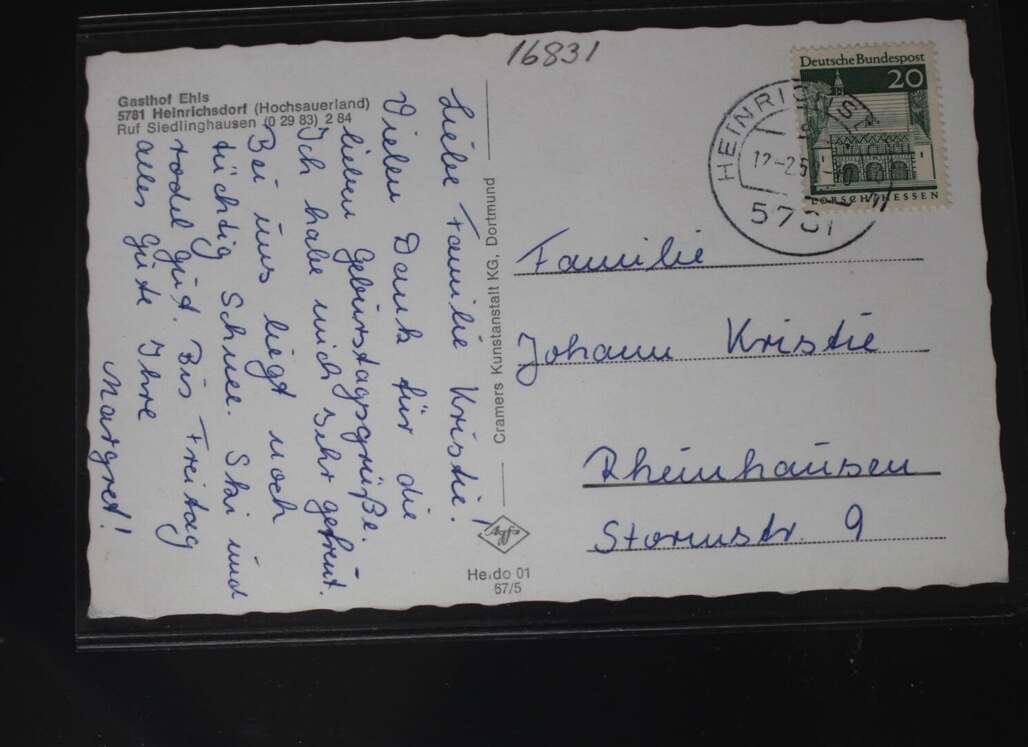 16831
Gasthof Ehls
5781 Heinrichsdorf (Hochsauerland)
Ruf Siedlinghausen (0 29 83) 2 84
Liebe Familie Kristie!
Vielen Dank für die
lieben Gebürstagsgrüße.
Ich habe mich sehr gefreut.
Bei uns liegt noch
tüchtig Schnee. Ski und
rodel gut. Bis Freitag
alles gute Ihre
Margret!
Cramers Kunstanstalt KG, Dortmund
Agfa
He.do 01
67/5
Deutsche Bundespost
20
LORSCH/HESSEN
5781
Familie
Johann Kristie
Rheinhausen
Stormstr. 9